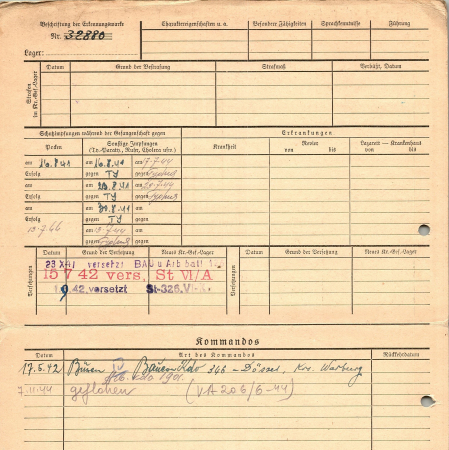 Beschriftung der Erkennungsmarke
Nr. 32880
Lager:
Charaktereigenschaften u. a.
Besondere Fähigkeiten
Sprachkenntnisse
Führung
Strafen in Kr.-Gef.-Lager
Datum
Grund der Bestrafung
Strafmaß
Verbüßt, Datum
Schutzimpfungen während der Gefangenschaft gegen
Erkrankungen
Pocken
Sonstige Impfungen
(Ty.-Paraty., Ruhr, Cholera usw.)
Krankheit
Revier
von bis
Lazarett — Krankenhaus
von bis
am 16.8.41 am 16.8.41 am 7.7.44
Erfolg gegen TY gegen Typhus
am am 23.8.41 am
Erfolg gegen TY gegen Typhus
am am 30.8.41 am
Erfolg gegen TY gegen
am 13.7.44 am
gegen Typhus gegen
Versetzungen
Datum
Grund der Versetzung
Neues Kr.-Gef.-Lager
Versetzungen
Datum
Grund der Versetzung
Neues Kr.-Gef.-Lager
versetzt BAU u Arb batl
15 7 42 vers, St VI/A
9.42. versetzt St-326, VI-K.
Kommandos
Datum
Art des Kommandos
Rückkehrdatum
17.5.42 Büren Bauern Kdo 366 - Dössel, Krs. Warburg
Arb. Kdo 1901.
geflohen (VA 206/6-44)